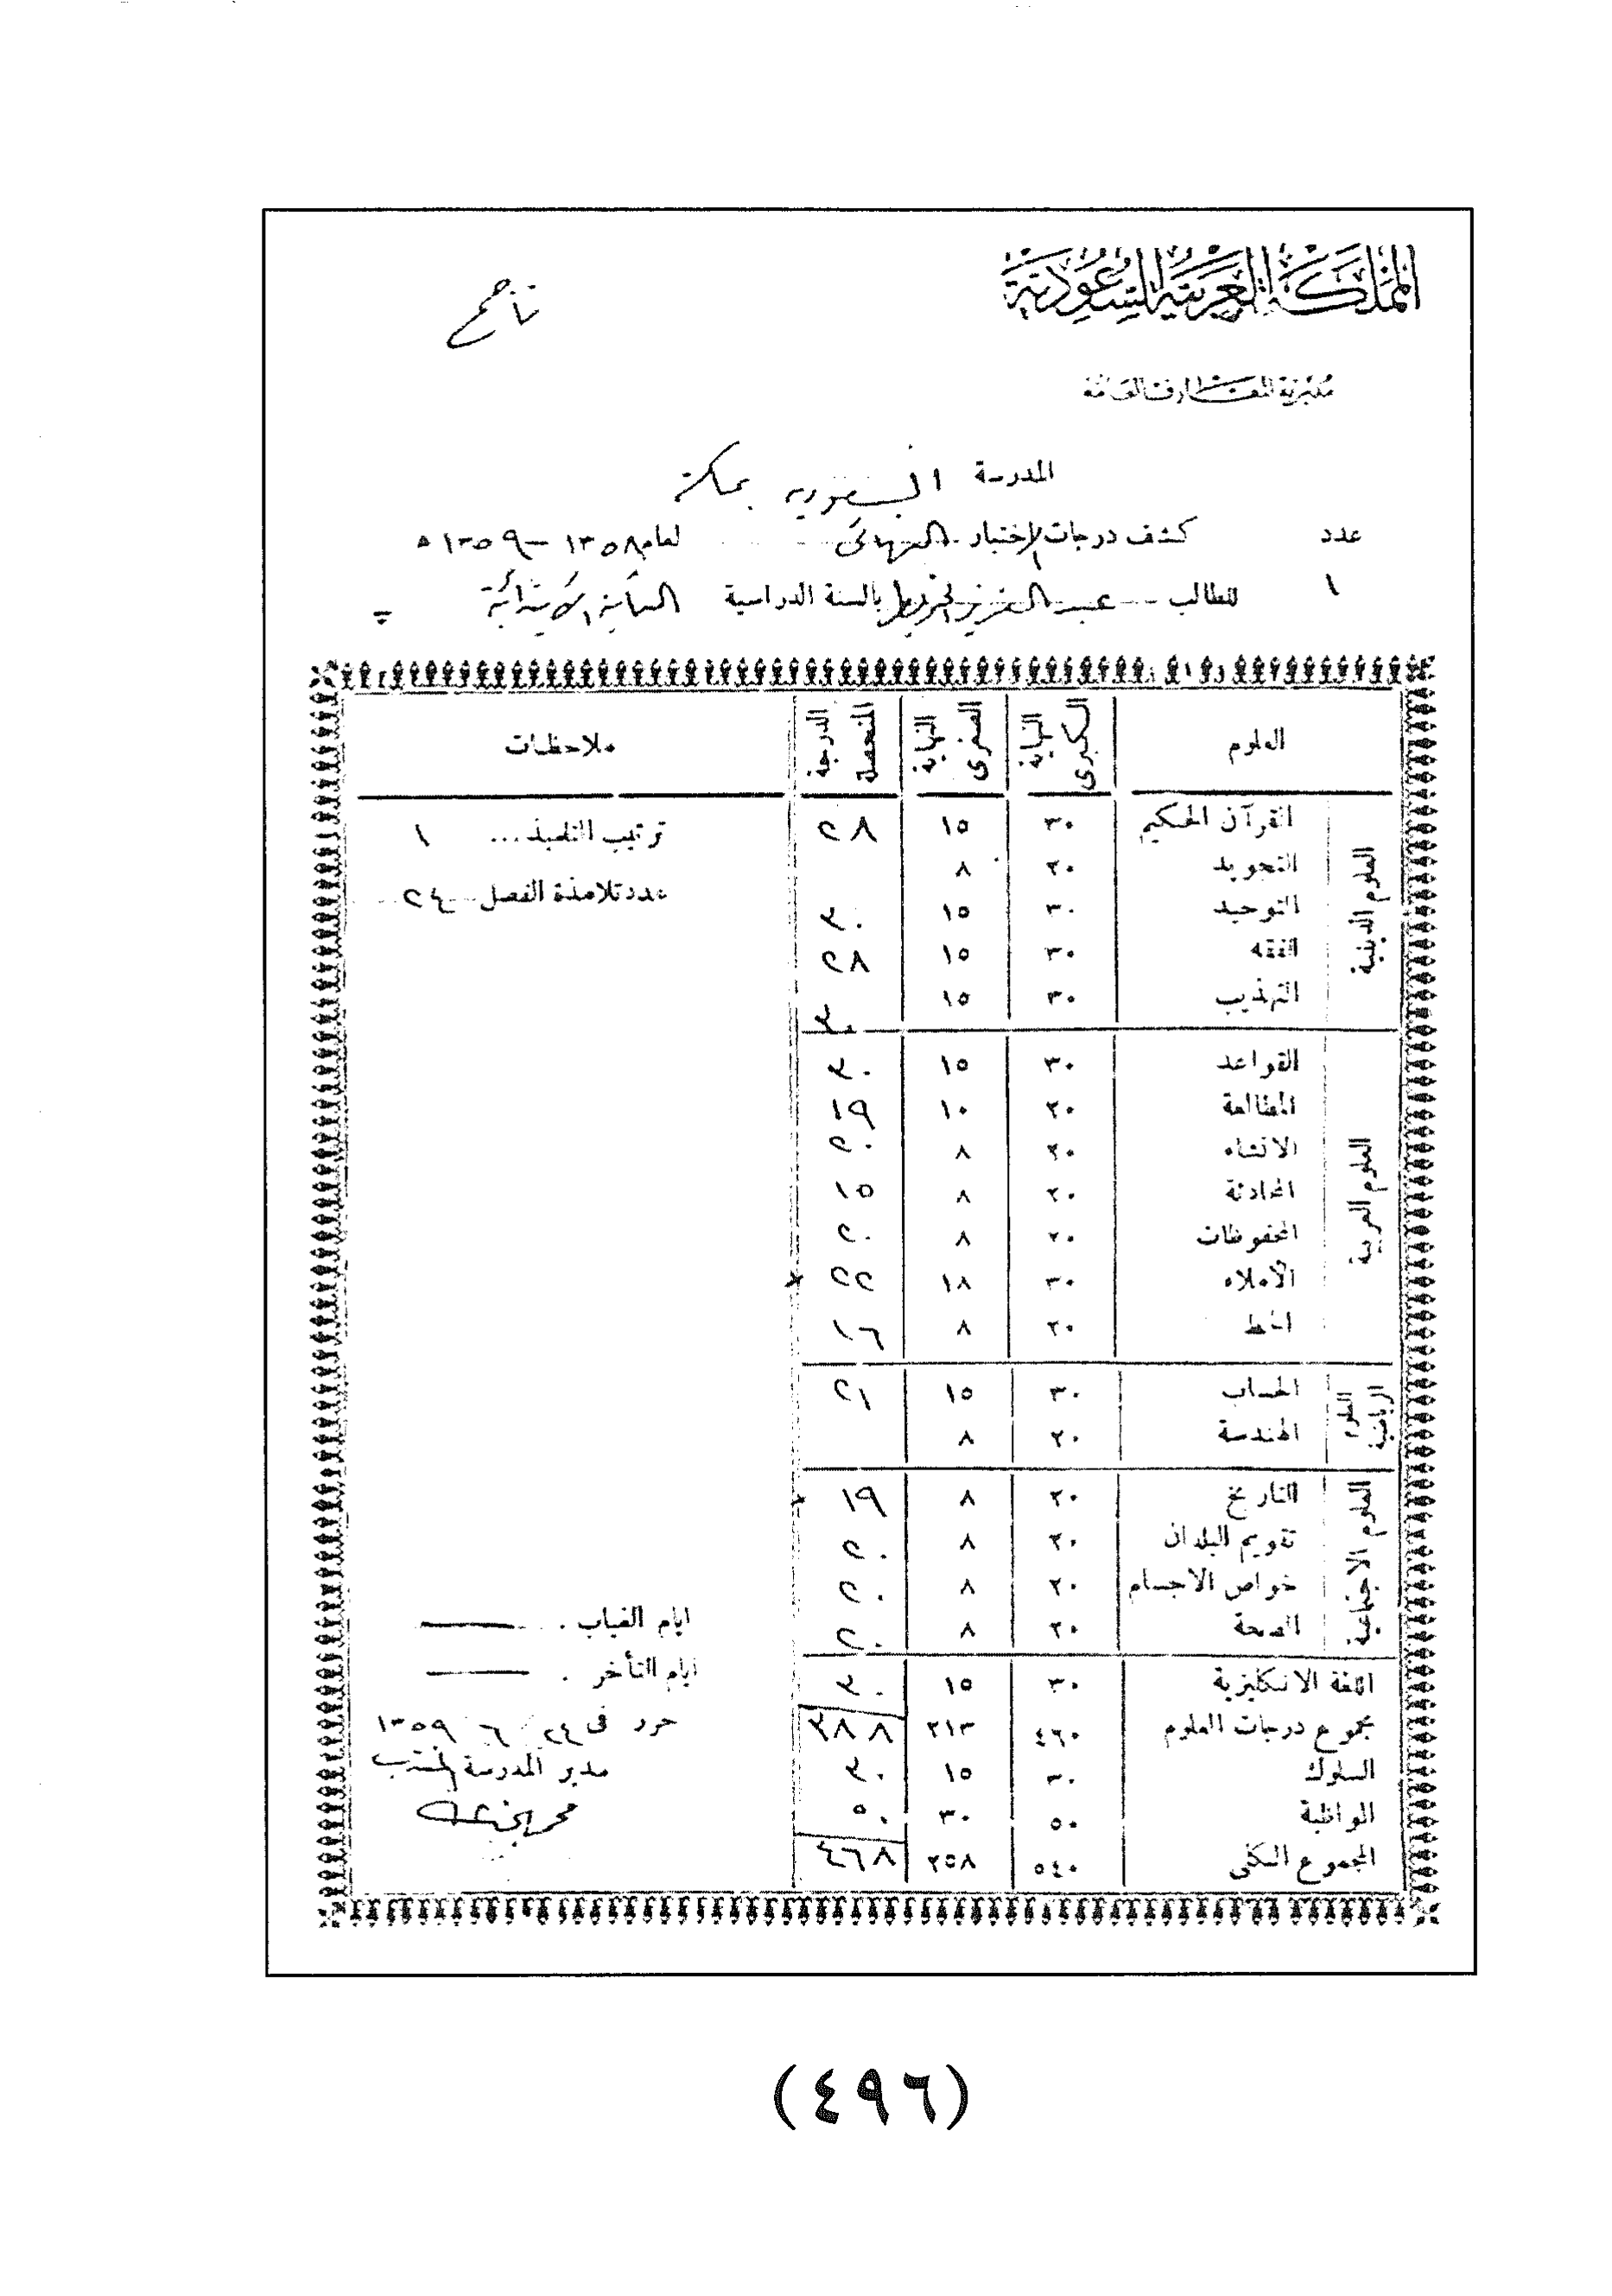 المملكة العربية السعودية
ناجح
مديرية المعارف العامة
المدرسة السعودية بمكة
عدد كشف درجات الاختبار النهائي لعام ١٣٥٨ - ١٣٥٩ ه
١ للطالب عبد العزيز الخويطر بالسنة الدراسية الثانية الابتدائية
العلوم النهاية الكبرى النهاية الصغرى الدرجة المتحصلة ملاحظات
العلوم الدينية
القرآن الحكيم ٣٠ ١٥ ٢٨ ترتيب التلميذ ... ١
التجويد ٢٠ ٨
التوحيد ٣٠ ١٥ ٣٠ عدد تلامذة الفصل ٢٤
الفقه ٣٠ ١٥ ٢٨
التهذيب ٣٠ ١٥ ٣٠
العلوم العربية
القواعد ٣٠ ١٥ ٣٠
المطالعة ٢٠ ١٠ ١٩
الانشاء ٢٠ ٨ ٢٠
المحادثة ٢٠ ٨ ١٥
المحفوظات ٢٠ ٨ ٢٠
الأملاء ٣٠ ١٨ ٢٢ ×
الخط ٢٠ ٨ ١٦
العلوم الرياضية
الحساب ٣٠ ١٥ ٢١
الهندسة ٢٠ ٨
العلوم الاجتماعية
التاريخ ٢٠ ٨ ١٩
تقويم البلدان ٢٠ ٨ ٢٠
خواص الاجسام ٢٠ ٨ ٢٠
الصحة ٢٠ ٨ ٢٠ ايام الغياب .
اللغة الانكليزية ٣٠ ١٥ ٣٠ ايام التأخر .
مجموع درجات العلوم ٤٦٠ ٢١٣ ٣٨٨ حرر في ٢٤ ٦ ١٣٥٩
السلوك ٣٠ ١٥ ٣٠ مدير المدرسة
المواظبة ٥٠ ٣٠ ٥٠
المجموع الكلى ٥٤٠ ٢٥٨ ٤٦٨
(٤٩٦)